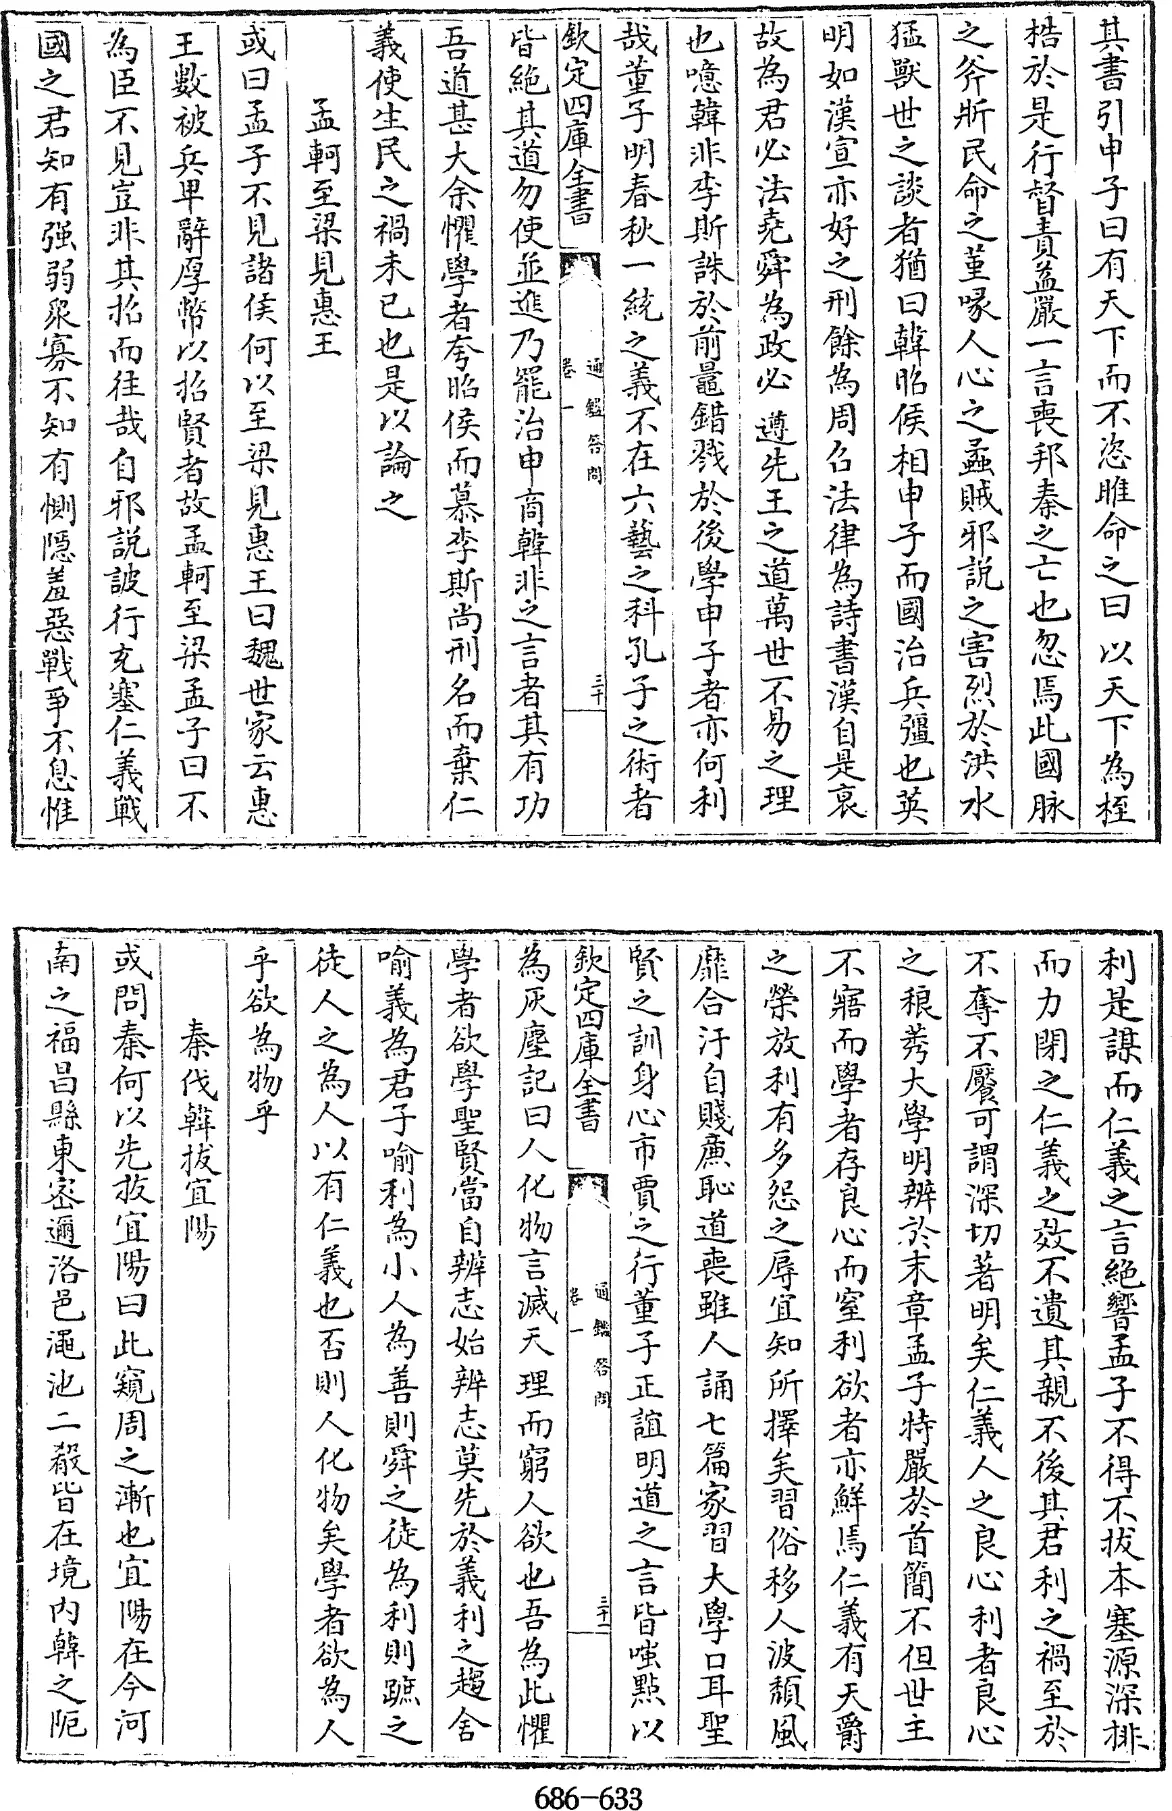 其書引申子曰有天下而不恣睢命之曰以天下為桎
梏於是行督責益嚴一言喪邦秦之亡也忽焉此國脉
之斧斨民命之堇喙人心之蟊賊邪説之害烈於洪水
猛獸世之談者猶曰韓昭侯相申子而國治兵彊也英
明如漢宣亦好之刑餘為周召法律為詩書漢自是衰
故為君必法堯舜為政必遵先王之道萬世不易之理
也噫韓非李斯誅於前鼂錯戮於後學申子者亦何利
哉董子明春秋一統之義不在六藝之科孔子之術者
欽定四庫全書
通鑑答問
卷一
三十
皆絶其道勿使並進乃罷治申商韓非之言者其有功
吾道甚大余懼學者夸昭侯而慕李斯尚刑名而棄仁
義使生民之禍未已也是以論之
孟軻至梁見惠王
或曰孟子不見諸侯何以至梁見惠王曰魏世家云惠
王數被兵卑辭厚幣以招賢者故孟軻至梁孟子曰不
為臣不見豈非其招而往哉自邪説詖行充塞仁義戰
國之君知有强弱衆寡不知有惻隠羞惡戰爭不息惟
利是謀而仁義之言絶響孟子不得不拔本塞源深排
而力閉之仁義之效不遺其親不後其君利之禍至於
不奪不饜可謂深切著明矣仁義人之良心利者良心
之稂莠大學明辨於末章孟子特嚴於首簡不但世主
不寤而學者存良心而窒利欲者亦鮮焉仁義有天爵
之榮放利有多怨之辱宜知所擇矣習俗移人波頽風
靡合汙自賤亷恥道喪雖人誦七篇家習大學口耳聖
賢之訓身心市賈之行董子正誼明道之言皆嗤㸃以
欽定四庫全書
通鑑答問
卷一
三十一
為灰塵記曰人化物言滅天理而窮人欲也吾為此懼
學者欲學聖賢當自辨志始辨志莫先於義利之趨舍
喻義為君子喻利為小人為善則舜之徒為利則蹠之
徒人之為人以有仁義也否則人化物矣學者欲為人
乎欲為物乎
秦伐韓拔宜陽
或問秦何以先拔宜陽曰此窺周之漸也宜陽在今河
南之福昌縣東密邇洛邑澠池二殽皆在境内韓之阨
686-633